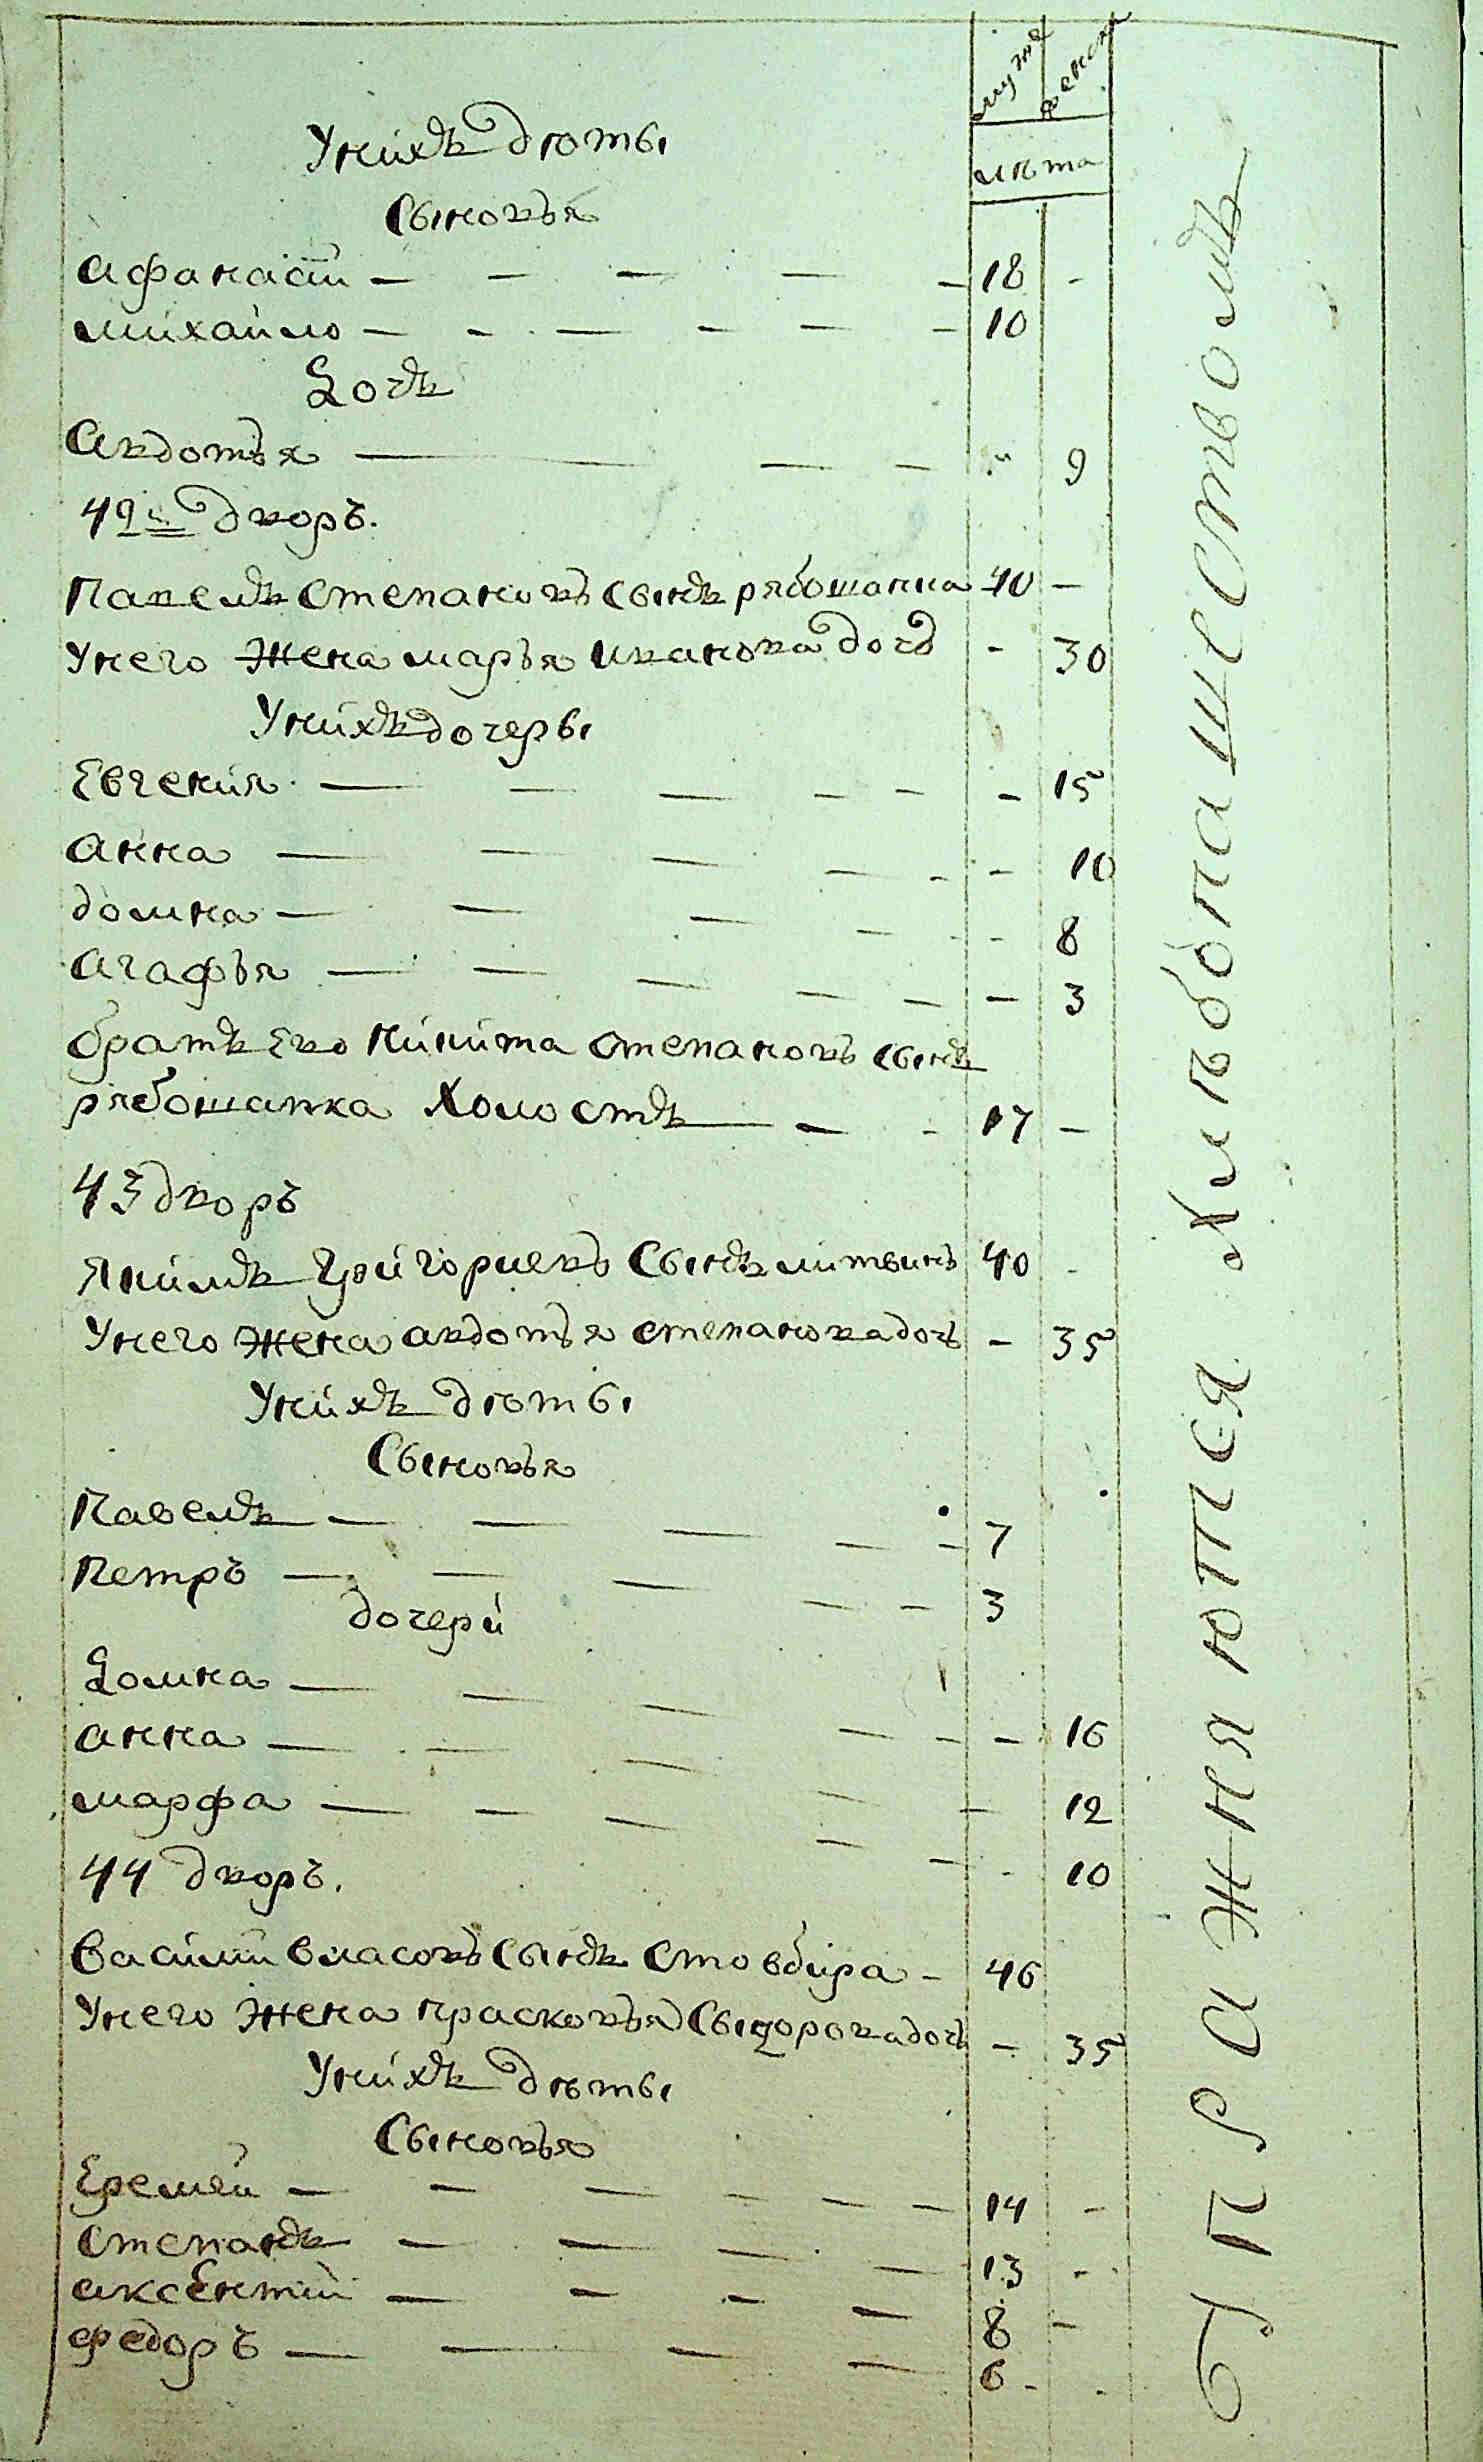 мужес женска
лѣта
Унихъ дѣты
Сыновья
Афанасій 18 -
михайло 10
Дочъ
Авдотья " 9
42й дворъ.
Павелъ Степановъ Сынъ рябошапка 40 -
Унего Жена марья иванова дочь - 30
Унихъ дочеры
Евгения - 15
анна - 10
домна - 8
агафья - 3
братъ Ево Никита степановъ сынъ
рябошапка холостъ 17 -
43 дворъ
Якимъ Григориевъ Сынъ литвинъ 40 -
Унего Жена авдотья степанова дочь - 35
Унихъ дѣты
Сыновья
Павелъ 7
Петръ 3
дочери
Домна - 16
анна - 12
марфа - 10
44 дворъ.
Василий власовъ Сынъ Стовбира - 46
Унего Жена прасковья Сыдорова дочь - 35
Унихъ дѣты
Сыновья
Еремѣй 14 -
степанъ 13 -
аксентий 8 -
федоръ 6 -
Упражняются хлѣбопашествомъ